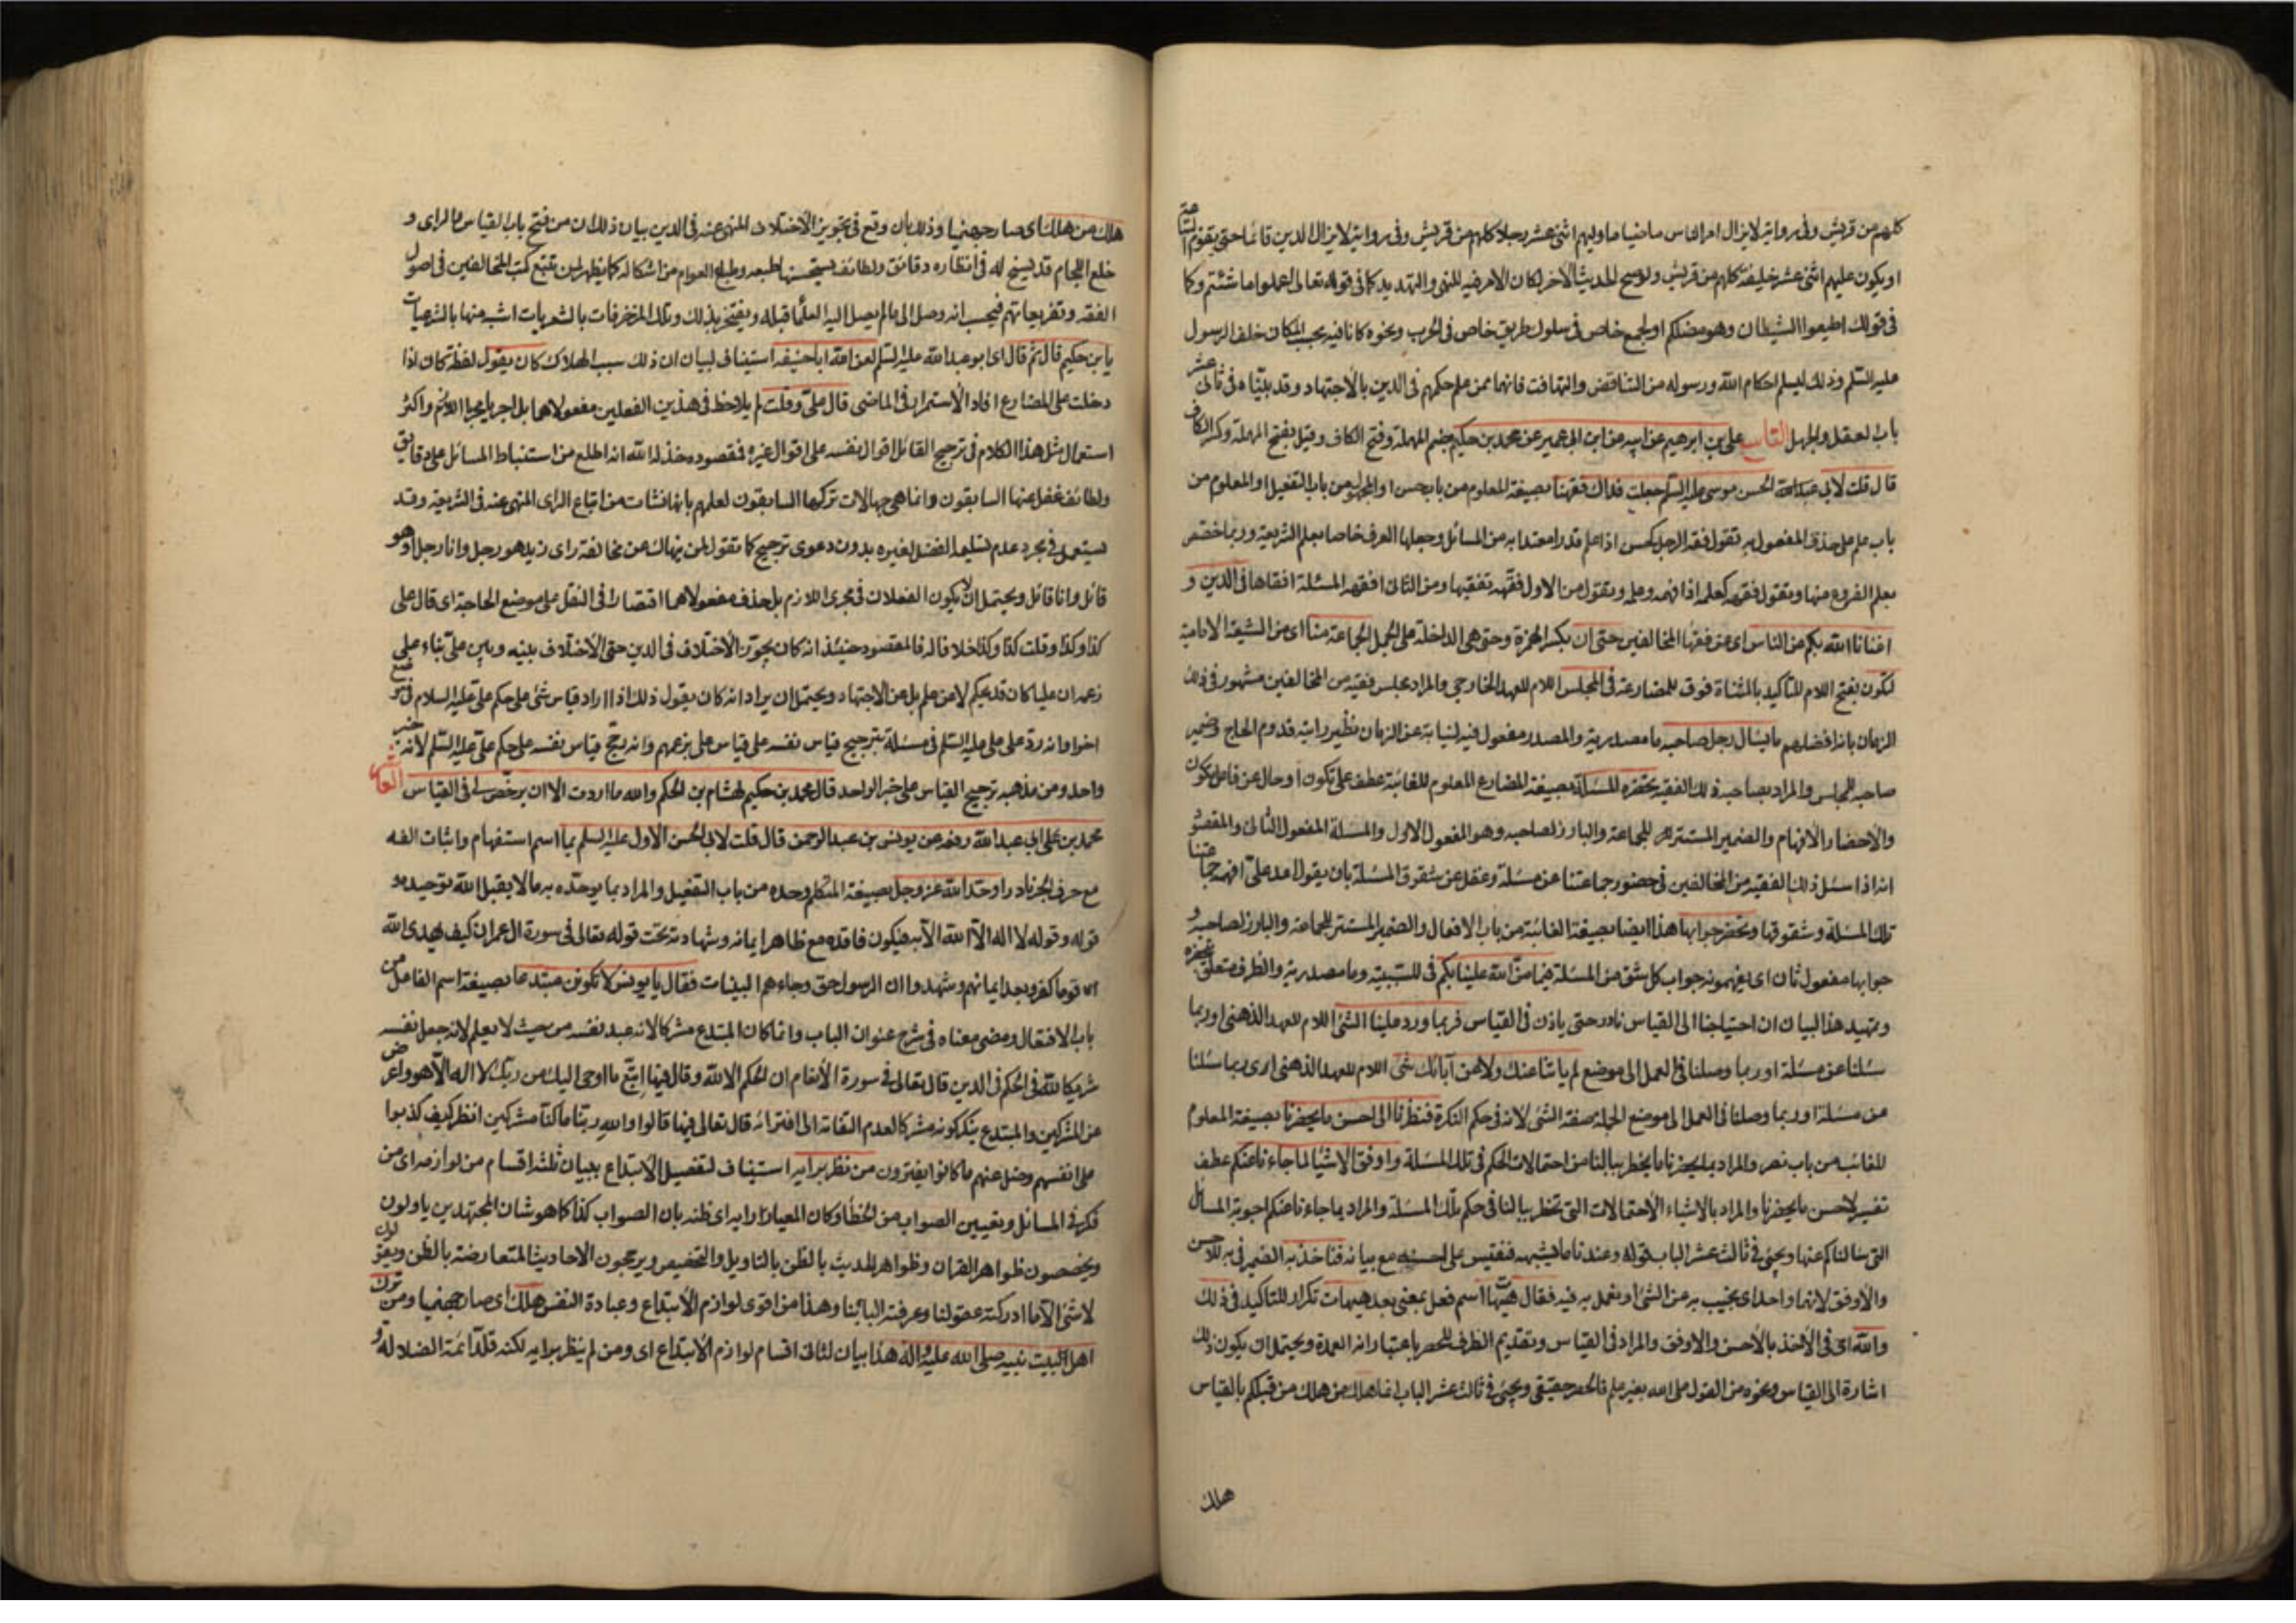 كلهم من قريش وفى رواية لايزال امر الناس ماضيا ما وليهم اثنى عشر رجلا كلهم من قريش وفى رواية لايزال الدين قائما حتى يقوم الساعة
او يكون عليهم اثنى عشر خليفة كلهم من قريش ولوصح الحديث الآخر لكان الامر فيه للنهى والتهديد كما فى قوله تعالى اعملوا ما شئتم وكما
فى قولك اطيعوا الشيطان وهو مضلكم او لجمع خاص فى سلوك طريق خاص فى الحرب ونحوه كانا فيه بحسب المكان خلف الرسول
عليه السّلم وذلك ليسلم احكام الله ورسوله من التناقض والتهافت فانهما ممن علم حكمهم فى الدين بالاجتهاد وقد بيّناه فى ثانى عشر
باب العقل والجهل التاسع على بن ابرهيم عن ابيه عن ابن ابى عمير عن محمد بن حكيم بضم المهملة وفتح الكاف وقيل بفتح المهملة وكسر الكاف
قال قلت لابى الحسن موسى عليه السّلم جعلت فداك فقهنا بصيغة المعلوم من باب حسن او المجهول من باب التفعيل او المعلوم من
باب علم على حذف المفعول به تقول فقه الرجل كحسن اذا علم قدرا معتدا به من المسائل وجعلها العرف خاصا بعلم الشريعة وربما خصّص
بعلم الفروع منها وتقول فقهه كعلمه اذا فهمه وعلمه وتقول من الاول فقّهه تفقيها ومن الثانى افقهه المسئلة افقاها فى الدين و
اغنانا الله بكم من الناس اى عن فقهاء المخالفين حتى ان بكسر الهمزة وحتى هى الداخلة على الجمل الجماعة منا اى من الشيعة الامامية
لتكون بفتح اللام للتأكيد بالمثناة فوق للمضارعة فى المجلس اللام للعهد الخارجى والمراد مجلس فقيه من المخالفين مشهور فى ذلك
الزمان بانه افضلهم ما يسأل رجل صاحبه ما مصدرية والمصدر مفعول فيه لنيابة عن الزمان نظير رايته قدوم الحاج وضمير
صاحبه للمجلس والمراد بصاحبه ذلك الفقيه تحضره المسئلة بصيغة المضارع المعلوم للغائبة عطف على تكون او حال عن فاعل تكون
والاحضار الافهام والضمير المستتر للجماعة والبارز لصاحبه وهو المفعول الاول والمسئلة المفعول الثانى والمقصود
انه اذا سئل ذلك الفقيه من المخالفين فى حضور جماعتنا عن مسئلة وغفل عن شقوق المسئلة بان يقول لا ادرى افهمه جماعتنا
تلك المسئلة وشقوقها وتحضر جوابها هذا ايضا بصيغة الغائبة من باب الافعال والضمير المستتر للجماعة والبارز لصاحبه و
جوابها مفعول ثان اى يفهمونه جواب كل شق من المسئلة فيما منّ الله علينا بكم فى للسببية وما مصدرية والظرف متعلق بتحضره
وتمهيد هذا البيان ان احتياجنا الى القياس نادر حتى ياذن فى القياس فربما ورد علينا الشئ اللام للعهد الذهنى او ربما
سئلنا عن مسئلة او ربما وصلنا فى العمل الى موضع لم ياتنا عنك ولا عن آبائك شئ اللام للعهد الذهنى اى ربما سئلنا
عن مسئلة او ربما وصلنا فى العمل الى موضع الجملة صفة الشئ لانه فى حكم النكرة فنظرنا الى احسن ما يحضرنا بصيغة المعلوم
للغائب من باب نصر والمراد بما يحضرنا ما يخطر ببالنا من احتمالات الحكم فى تلك المسئلة واوفق الاشيا لما جاءنا عنكم عطف
تفسير لاحسن ما يحضرنا والمراد بالاشياء الاحتمالات التى تخطر ببالنا فى حكم تلك المسئلة والمراد بما جاءنا عنكم اجوبة المسائل
التى سالناكم عنها ويجئ فى ثالث عشر الباب قوله وعندنا ما يشبهه فنقيس على احسنه مع بيانه فناخذ به الضمير فى به للاحسن
والاوفق لانهما واحد اى نجيب به عن الشئ او نعمل به فيه فقال هيهات اسم فعل بمعنى بعد هيهات تكرار للتاكيد فى ذلك
والله اى فى الأخذ بالأحسن والاوفق والمراد فى القياس وتقديم الظرف للحصر باعتبار انه العمدة ويحتمل ان يكون ذلك
اشارة الى القياس ونحوه من القول على الله بغير علم فالحصر حقيقى ويجئ فى ثالث عشر الباب انما هلك من هلك من قبلكم بالقياس
هلك
هلك من هلك اى صار جهنميا وذلك بان وقع فى تجويز الاختلاف المنهى عنه فى الدين بيان ذلك ان من فتح باب القياس والراى و
خلع اللجام قد يسنح له فى انظاره دقائق ولطائف يستحسنها طبعه وطبع العوام من اشكاله كما يظهر لمن تتبع كتب المخالفين فى اصول
الفقه وتفريعاتهم فيحسب انه وصل الى ما لم يصل اليه العلما قبله ويفتخر بذلك وتلك المزخرفات بالشعريات اشبه منها بالشرعيات
يا بن حكيم قال ثم قال اى ابو عبد الله عليه السّلم لعن الله ابا حنيفه استيناف لبيان ان ذلك سبب الهلاك كان يقول لفظة كان اذا
دخلت على المضارع افاد الاستمرار فى الماضى قال علىّ وقلت لم يلاحظ فى هذين الفعلين مفعولاهما بل اجريا مجرى اللازم واكثر
استعمال مثل هذا الكلام فى ترجيح القائل اقوال نفسه على اقوال غيره فمقصوده خذله الله انه اطلع من استنباط المسائل على دقايق
ولطائف غفل عنها السابقون وانما هى جهالات تركها السابقون لعلمهم بانها نشات من اتباع الراى المنهى عنه فى الشريعة وقد
يستعمل فى مجرد عدم تسليم الفضل لغيره بدون دعوى ترجيح كما تقول لمن ينهاك عن مخالفة راى زيد هو رجل وانا رجل او هو
قائل وانا قائل ويحتمل ان لا يكون الفعلان فى مجرى اللازم بل حذف مفعولاهما اقتصارا فى النقل على موضع الحاجة اى قال على
كذا وكذا وقلت كذا وكذا خلافا له فالمقصود حينئذ انه كان يجوّز الاختلاف فى الدين حتى الاختلاف بينه وبين علىّ بناء على
زعمه ان عليا كان قد يحكم لا عن علم بل عن الاجتهاد ويحتمل ان يراد انه كان يقول ذلك اذا اراد قياس شئ على حكم علىّ عليه السلام فى موضع
اخر او انه ردّ على علىّ عليه السّلم فى مسئلة بترجيح قياس نفسه على قياس على بزعمهم وانه يرجح قياس نفسه على حكم علىّ عليه السّلم لأنه خبر
واحد ومن مذهبه ترجيح القياس على خبر الواحد قال محمد بن حكيم لهشام بن الحكم والله ما اردت الا ان يرخص لى فى القياس العاشر
محمد بن ابى عبد الله رفعه عن يونس بن عبد الرحمن قال قلت لابى الحسن الاول عليه السلم بما اسم استفهام واثبات الفه
مع حرف الجر نادر اوحّد الله عز وجل بصيغة المتكلم وحده من باب التفعيل والمراد بما يوحّده به ما لا يقبل الله توحيده
قوله وقوله لا اله الّا الله الّا به فيكون فاقده مع ظاهر ايمانه وشهادته تحت قوله تعالى فى سورة ال عمران كيف يهدى الله
قوما كفروا بعد ايمانهم وشهدوا ان الرسول حق وجاءهم البينات فقال يا يونس لا تكونن مبتدعا بصيغة اسم الفاعل من
باب الافتعال ومضى معناه فى شرح عنوان الباب وانما كان المبتدع مشركا لانه عبد نفسه من حيث لا يعلم لانه جعل نفسه
شريكا لله فى الحكم فى الدين قال تعالى فى سورة الأنعام ان الحكم الا لله وقال فيها اتبع ما اوحى اليك من ربّك لا اله الّا هو واعرض
عن المشركين والمبتدع ينكر كونه مشركا لعدم التفاته الى افترائه قال تعالى فيها قالوا والله ربّنا ما كنّا مشركين انظر كيف كذبوا
على انفسهم وضل عنهم ما كانوا يفترون من نظر برأيه استيناف لتفصيل الأبتداع ببيان ثلثة اقسام من لوازمه اى من
فكر فى المسائل وتعيين الصواب من الخطأ وكان المعيار رايه اى ظنه بان الصواب كذا كما هو شان المجتهدين ياولون
ويخصصون ظواهر القران وظواهر الحديث بالظن بالتاويل والتخصيص ويرجحون الاحاديث المتعارضة بالظن ويقولون
لا شئ الّا ما ادركته عقولنا وعرفته البابنا وهذا من اقوى لوازم الأبتداع وعبادة النفس هلك اى صار جهنميا ومن ترك
اهل البيت نبيه صلى الله عليه واله هذا بيان لثانى اقسام لوازم الأبتداع اى ومن لم ينظر برايه لكنه قلّد ائمة الضلالة و